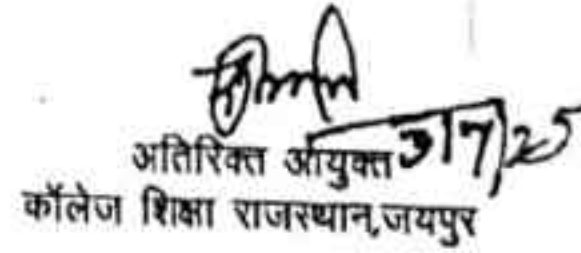 अतिरिक्त आयुक्त 3/7/25
कॉलेज शिक्षा राजस्थान,जयपुर